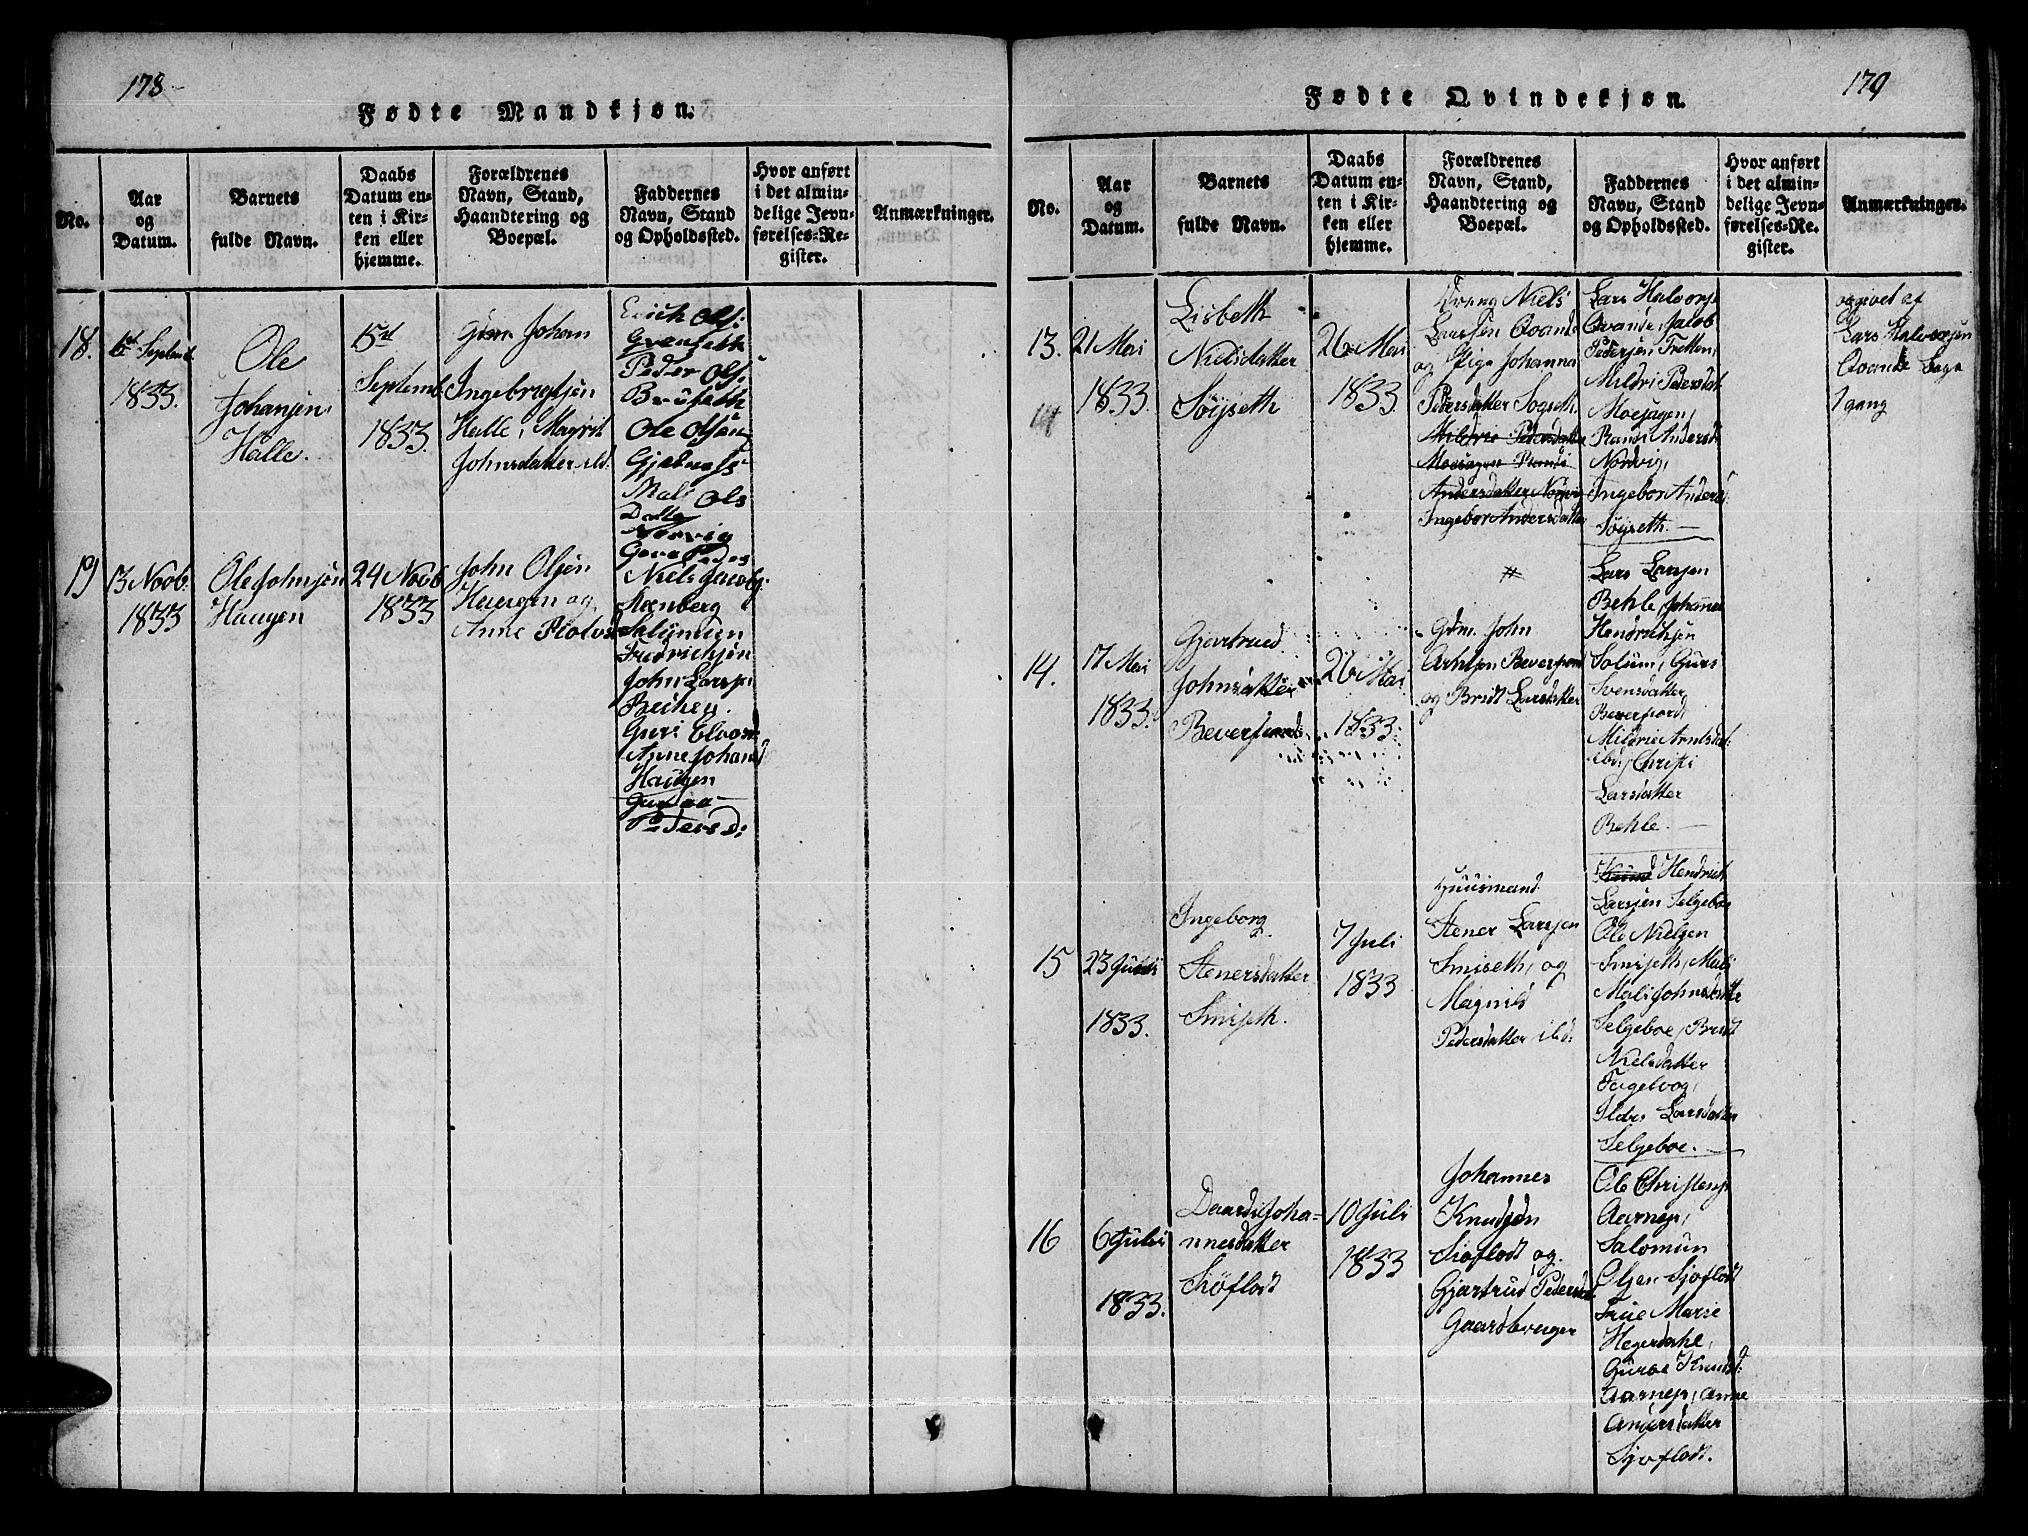 178
Fødte Mandkjøn.
No.
Aar
og
Datum.
Barnets
fulde Navn.
Daabs
Datum en-
ten i Kir-
ken eller
hjemme.
Forældrenes
Navn, Stand,
Haandtering og
Boepæl.
Faddernes
Navn, Stand
og Opholdssted.
Hvor anført
i det almin-
delige Jevn-
førelses-Re-
gister.
Anmærkninger.
18.
Septemb.
1833.
Ole
Johansen
Halle.
15de
Septemb.
1833.
Gdm. Johan
Ingebrigtsen
Halle, Magrit
Johnsdatter ibd.
Erich Ols:
Grenseth
Peder Ols:
Bruseth
Ole Olsen
Gjelnæss
Mali Ols
Datter
Norvig
Peders
19
13 Novb.
1833
Ole Johnsen
Haugen
24 Novb
1833
John Olsen
Haugen og
Anne
Niels Jacobs:
Monberg
Salomon
Fredrichsen
John Larss:
Guri
Anne Johansd
Haugen
Pedersd:
179
Fødte Qvindekjøn.
No.
Aar
og
Datum.
Barnets
fulde Navn.
Daabs
Datum en-
ten i Kir-
ken eller
hjemme.
Forældrenes
Navn, Stand,
Haandtering og
Boepæl.
Faddernes
Navn, Stand
og Opholdssted.
Hvor anført
i det almin-
delige Jevn-
førelses-Re-
gister.
Anmærkninger.
13.
21 Mai
1833.
14
Lisbeth
Nielsdatter
Søgseth
26 Mai
1833.
Dreng Niels
Larssen Qvande
og Pige Johanna
Pedersdatter Sogseth.
Mildrie Pedersdatter
Moesagen Randi
Andersdatter Norvig
Ingebor Andersdatter
Lars Halvors
Qvande, Jacob
Pedersen Tretten,
Mildri Pedersdat
Moesagen,
Randi Andersd
Nordvig,
Ingebor Andersd
Søgseth.
opgivet af
Lars Halvorsen
Qvande
1 gang
14.
17 Mai
1833.
Gjertrued
Johnsdatter
Beverfiord
26 Mai
1833.
#
Gdm. John
Arntsen Beverfiord
og Bridt Larsdatter
Lars Larsen
Behle, Johannes
Hendrichsen
Solum, Guri
Svensdatter
Beverfiord,
Mildrie Arntsdat:
ibd, Christi
Larsdatter
Behle.
15
23 Juni
1833.
Ingeborg
Stenersdatter
Smiseth.
7 Juli
1833
Huusmand
Stener Larssen
Smiseth, og
Magnild
Pedersdatter ibd:
Knud Hendrich
Larssen Selgeboe
Ole Nielsen
Smiseth, Mali
Mali Johnsdatte
Selgeboe, Bridt
Nielsdatter
Fugelvog,
Larsdatter
Selgeboe.
16
6 Juli
1833.
Daardi Joha-
nnesdatter
Siøflodt
10 Juli
1833
Johannes
Knudsen
Sioflodt og
Gjertrud Pedersdat
Gaardbruger
Ole Christens
Aarnes,
Salomun
Olsen Sjoflodt
Frue Marie
Hegerdahl,
Guroe Knudsd:
Aarnes, Anne
Andersdatter
Sjoflodt.